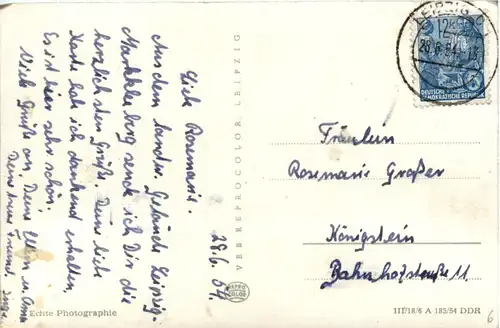 28.6.54.
Liebe Rosemarie.
Aus dem Gelände Leipzig-
Markkleeberg sende ich Dir die
herzlichsten Grüße. Deine liebe
Karte hab ich dankend erhalten.
Es ist hier sehr schön.
Viele Grüße an Deine Eltern u. Oma
Deine Freundin Inge.
VEB REPROCOLOR LEIPZIG
REPRO
COLOR
LEIPZIG C
28.6.54
DEUTSCHE
DEMOKRATISCHE REPUBLIK
Fräulein
Rosemarie Großer
Königstein
Bahnhofstraße 11.
Echte Photographie
III/18/6 A 183/54 DDR
6